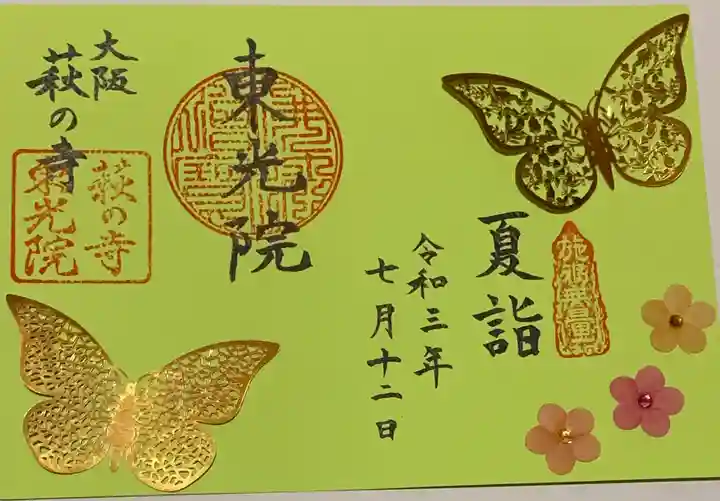 夏詣
令和三年
七月十二日
東光院
大阪
萩の寺
萩の寺
東光院